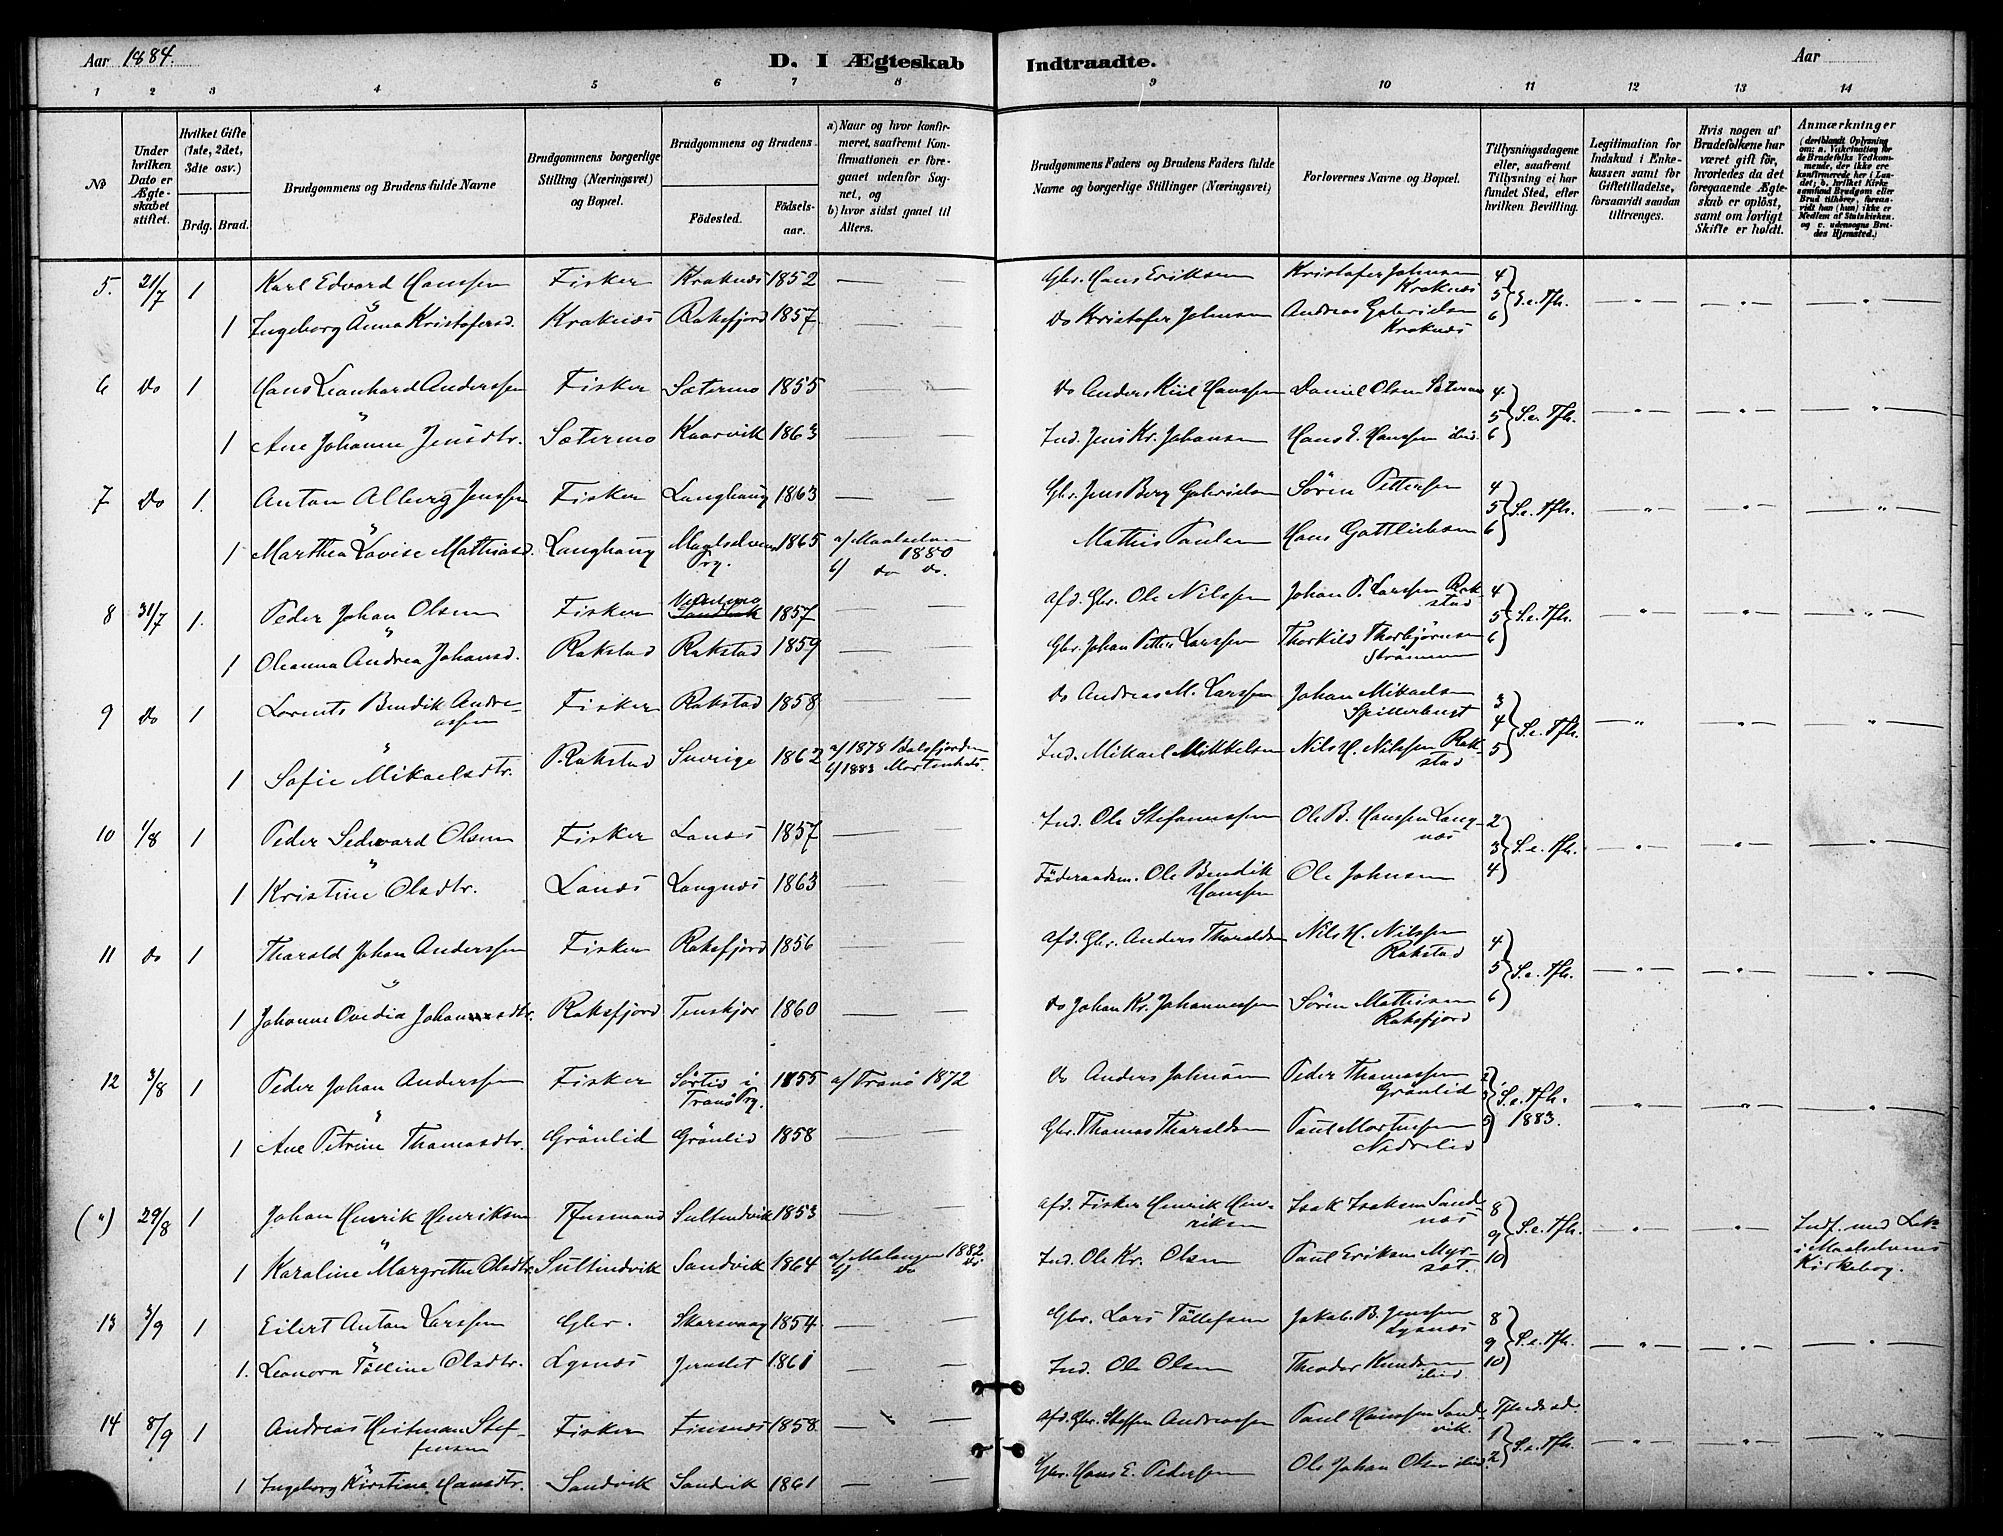 Aar 1884.
D. I Ægteskab Indtraadte.
Aar
1 2 3 4 5 6 7 8 9 10 11 12 13 14
No
Under hvilken Dato er Ægteskabet stiftet.
Hvilket Gifte (1ste, 2det, 3dte osv.)
Brdg. Brud.
Brudgommens og Brudens fulde Navne
Brudgommens borgerlige Stilling (Næringsvei) og Bopæl.
Brudgommens og Brudens
Födested.
Födsels-aar.
a) Naar og hvor konfirmeret, saafremt Konfirmationen er foregaaet udenfor Sognet, og
b) hvor sidst gaaet til Alters.
Brudgommens Faders og Brudens Faders fulde Navne og borgerlige Stillinger (Næringsvei)
Forlovernes Navne og Bopæl.
Tillysningsdagene eller, saafremt Tillysning ei har fundet Sted, efter hvilken Bevilling.
Legitimation for Indskud i Enkekassen samt for Giftetilladelse, forsaavidt saadan tiltrænges.
Hvis nogen af Brudefolkene har været gift för, hvorledes da det foregaaende Ægteskab er oplöst, samt om lovligt Skifte er holdt.
Anmærkninger
5. 21/7 1 Karl Edvard Hanssen Fisker Kraknæs 1852 — — Gbr. Hans Eriksen Kristofer Johnsen Kraknæs 4 5 6 S.e. Tfh.
1 Ingeborg Anna Kristofersd. Kraknæs Raksfjord 1857. — — Do Kristofer Johnsen Andreas Gabrielsen Kraknæs
6 Do 1 Hans Leonhard Anderssen Fisker Sætermo 1855 — Do Anders Kiil Hanssen Daniel Olsen Sætermo 4 5 6 S.e. Tfh.
1 Ane Johanne Jensdtr. Sætermo Kaarvik 1863 — — Ind. Jens Kr. Johansen Hans E. Hanssen ibid.
7 Do 1. Anton Alberg Jenssen Fisker Langhaug 1863 — — Gbr. Jens Berg Gabrielsen Sören Pettersen 4 5 6 S.e. Tfh.
1 Marthea Lovise Mathiasd. Langhaug Maalselvens Prg. 1865 a/ Maalselven 1880 b/ do do. Mathis Paulsen Hans Gottliebsen
8 31/7 1. Peder Johan Olsen Fisker Sandvik 1857 — — afd. Gbr. Ole Nilssen Johan P. Larssen Rakstad 4 5 6 S.e. Tfh.
1 Oleanna Andrea Johansd. Rakstad Rakstad 1859 — — Gbr. Johan Petter Larssen Thorkild Thorbjörnsen Strömmen
9 Do 1 Lorents Bendik Andreassen Fisker Rakstad 1858 — — Do Andreas M. Larssen Johan Mikaelsen Spillerbugt 3 4 5 S.e. Tfh.
1 Sofie Mikaelsdtr. Rakstad Sverige 1862 a/ 1878 Balsfjorden b/ 1883 Mortenhals. Ind. Mikael Mikkelsen Nils H. Nilssen Rakstad
10 1/8 1 Peder Sedevard Olsen Fisker Lanæs 1857 — — Ind. Ole Stefanussen Ole B. Hanssen Langnæs 2 3 4 S.e. Tfh.
1 Kristine Olsdtr. Lanæs Langnæs 1863 — — Föderaadsm. Ole Bendik Hanssen Ole Johnsen
11 do 1 Tharald Johan Anderssen Fisker Raksfjord 1856 — — afd. Gbr. Anders Tharaldsen Nils H. Nilssen Rakstad 4 5 6 S.e. Tfh.
1 Johanne Ovedia Johansdtr. Raksfjord Tenskjær 1860 — — do Johan Kr. Johannessen Sören Mathisen Raksfjord
12 3/8 1 Peder Johan Anderssen Fisker Sörlid i Tranö Prg. 1855 a/ Tranö 1872 do Anders Johnsen Peder Thomassen Grönlid 2 3 5 S.e. Tfh. 1883.
1 Ane Petrine Thomasdtr. Grönlid Grönlid 1858 — — Gbr. Thomas Tharaldsen Paul Mortensen Nedrelid
(") 29/8 1 Johan Henrik Henriksen Sultindvik 1853 — — afd. Fisker Henrik Henriksen Isak Isaksen Sandnæs 8 9 10 S.e. Tfh. Indf. med i Maalselvens Kirkebog.
1 Karoline Margrethe Olsdtr. Sultindvik Sandvik 1864 a/ Malangen 1882 b/ do do. Ind. Ole Kr. Olsen Paul Eriksen
13 3/9 1 Eilert Anton Larssen Gbr. Skarsvaag 1854 — — Gbr. Lars Tollefsen Jakob B. Jenssen Lysnæs 8 9 10 S.e. Tfh.
1. Leonora Tölline Olsdtr. Lysnæs 1861 — — Ind. Ole Olsen Theodor Knudsen ibid
14 8/9 1 Andreas Heitman Steffensen Fisker Finsnæs 1858 — — afd. Gbr. Steffen Andreassen Paul Hanssen Sandvik. 1 2 S.e. Tfh.
1 Ingeborg Kirstine Hansdtr. Sandvik Sandvik 1861 — — Gbr. Hans E. Pedersen Ole Johan Olsen ibid.